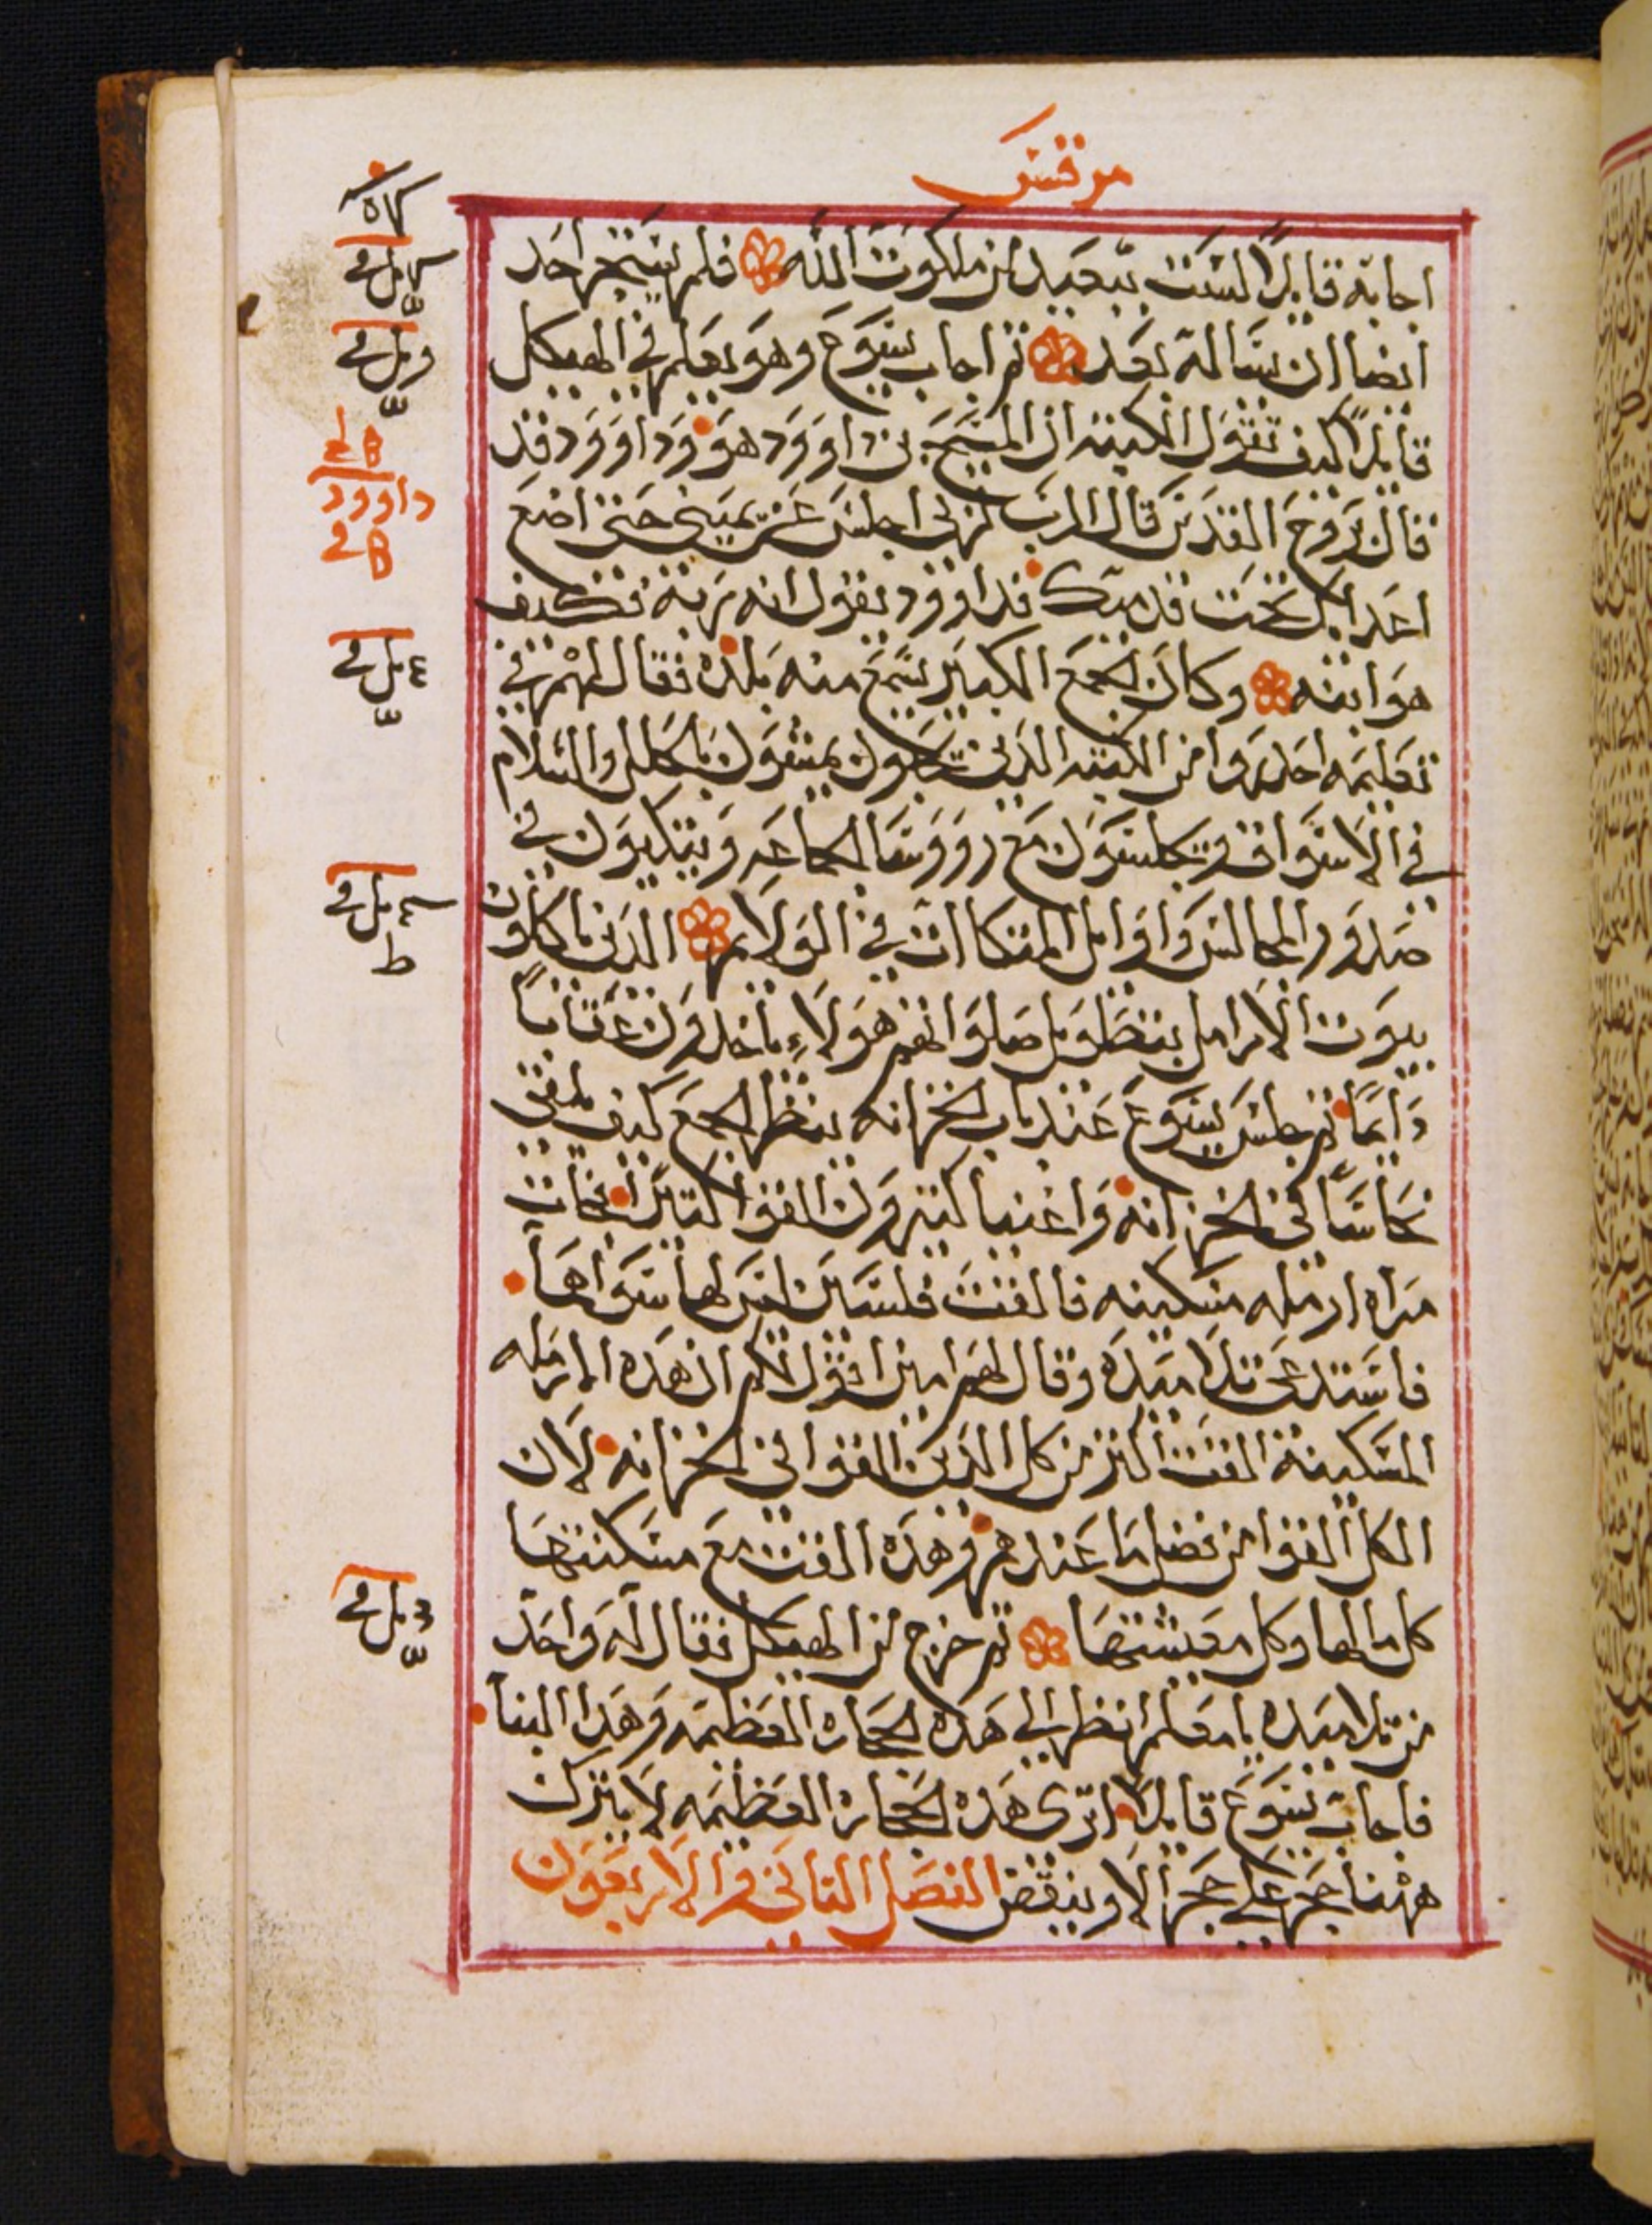 مرقس
اجابه قايلاً لست ببعيد من ملكوت الله فلم يستجر احد
ايضا ان يساله بعد ثم اجاب يسوع وهو يعلم في الهيكل
قايلاً كيف تقول الكتبه ان المسيح بن داوود هو وداوود قد
داوود
قال بروح القدس قال الرب لربي اجلس عن يميني حتي اضع
اعداك تحت قدميك فداوود يقول انه ربه فكيف
هو ابنه وكان الجمع الكبير يسمع منه بلده فقال لهم في
تعليمه احدروا من الكتبه الدين يحبون يمشون بالحلل والسلام
في الاسواق ويجلسون مع رووسا الجماعه ويتكيون في
صدور المجالس واوايل المتكاات في الولايم الدين ياكلون
بيوت الارامل بتطويل صلواتهم هولاء ياخدون عقاباً
دايماً ثم جلس يسوع عند باب الخزانه ينظر الجمع كيف يلقي
نحاساً في الخزانه واغنيا كتيرون القوا كتيراً فجات
مراه ارمله مسكينه فالقت فلسين ليس لها سواها
فاستدعي تلاميده وقال لهم امين اقول لكم ان هده الارمله
المسكينة القت اكتر من كل الدين القوا في الخزانه لان
الكل القوا من فضل ما عندهم وهده القت مع مسكنتها
كل مالها وكل معيشتها ثم خرج من الهيكل فقال له واحد
من تلاميده يا معلم انظر الي هده الحجاره العظيمه وهدا البنا
فاجاب يسوع قايلاً اترى هده الحجارة العظيمه لا يترك
ههنا حجر علي حجر الا وينقض الفصل التاني والاربعون